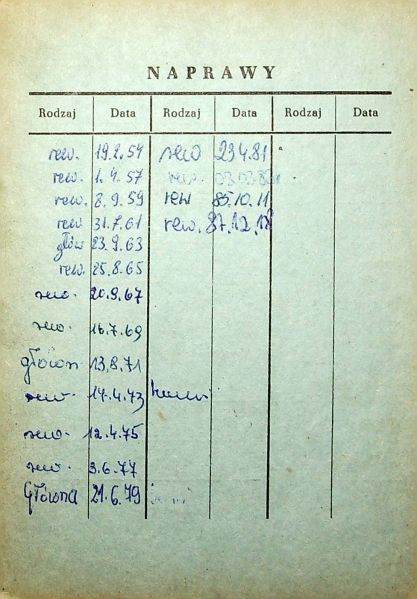 NAPRAWY
Rodzaj Data Rodzaj Data Rodzaj Data
rew. 19.2.54 rew 23.4.81
rew. 1.4.57 rew.
rew. 8.9.59 rew 85.10.11
rew. 31.7.61 rew. 87.12.18
głów 23.9.63
rew. 25.8.65
rew. 20.9.67
rew. 16.7.69
główn 13.8.71
rew. 14.4.73
rew. 12.4.75
rew. 3.6.77
Główna 21.6.79